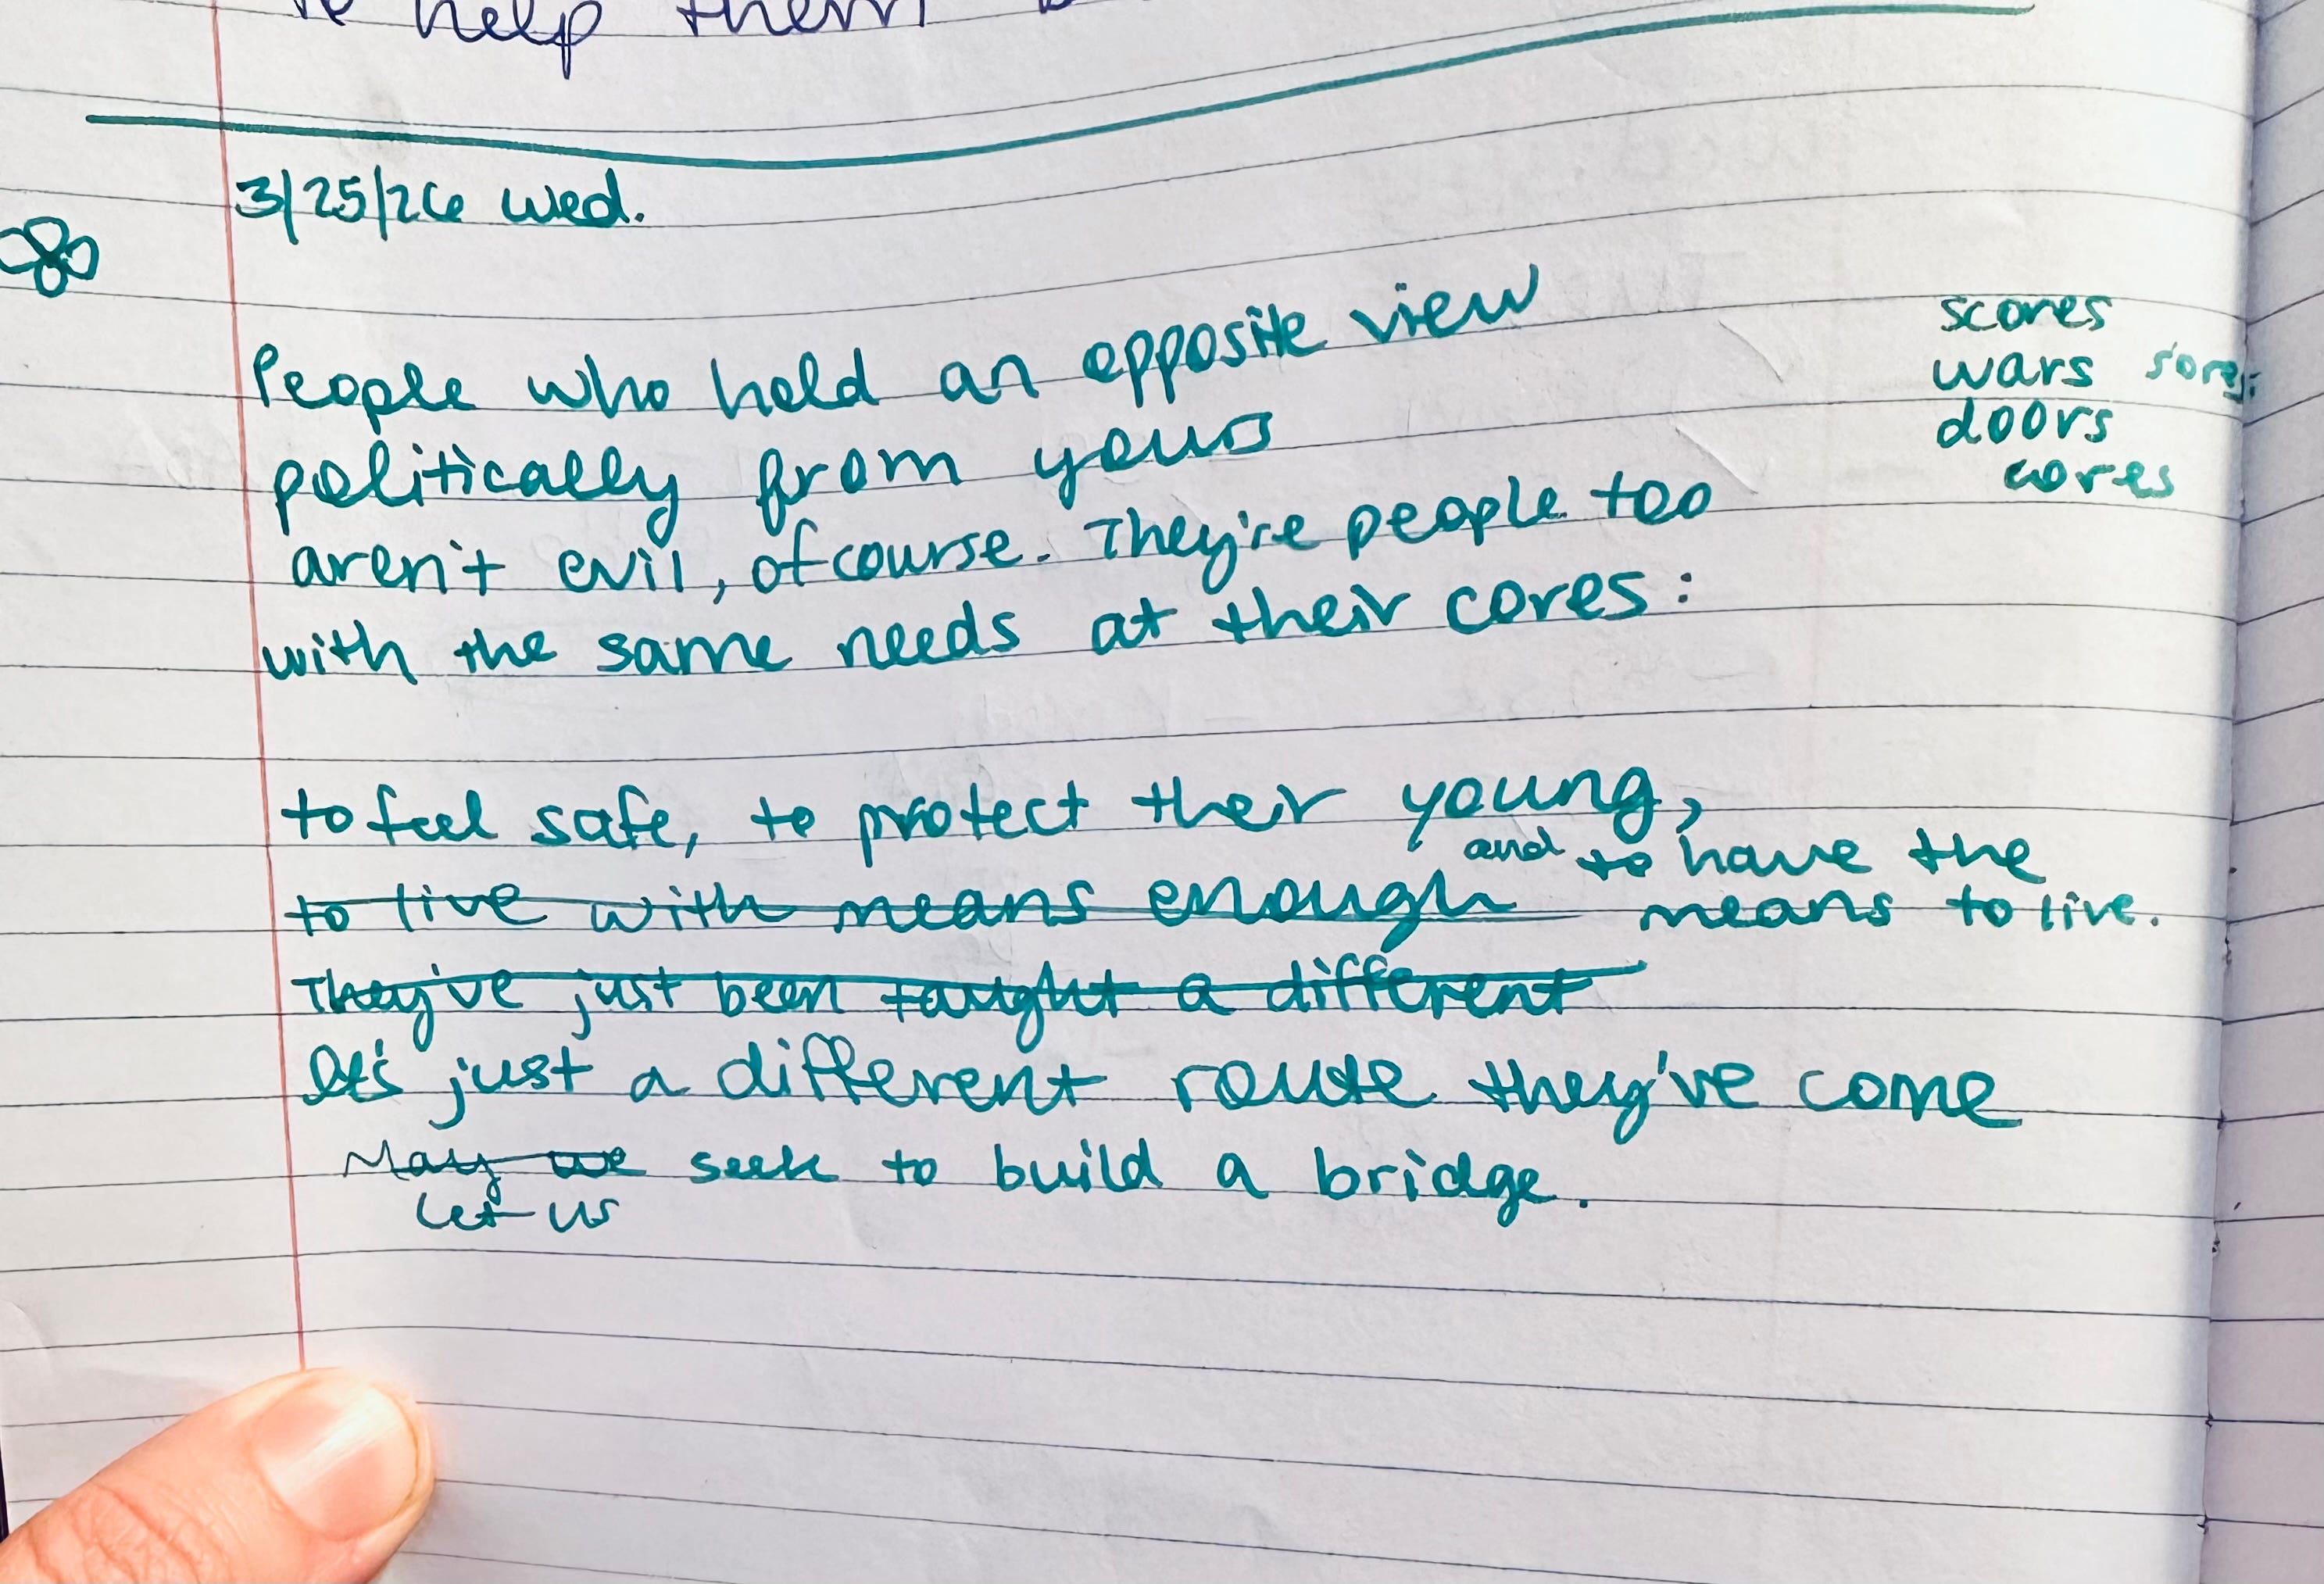 help them
3/25/26 Wed.
People who hold an opposite view
politically from yours
aren't evil, of course. They're people too
with the same needs at their cores:
scores
wars sores
doors
cores
to feel safe, to protect their young,
and to have the
to live with means enough means to live.
They've just been taught a different
It's just a different route they've come
May we seek to build a bridge.
let us